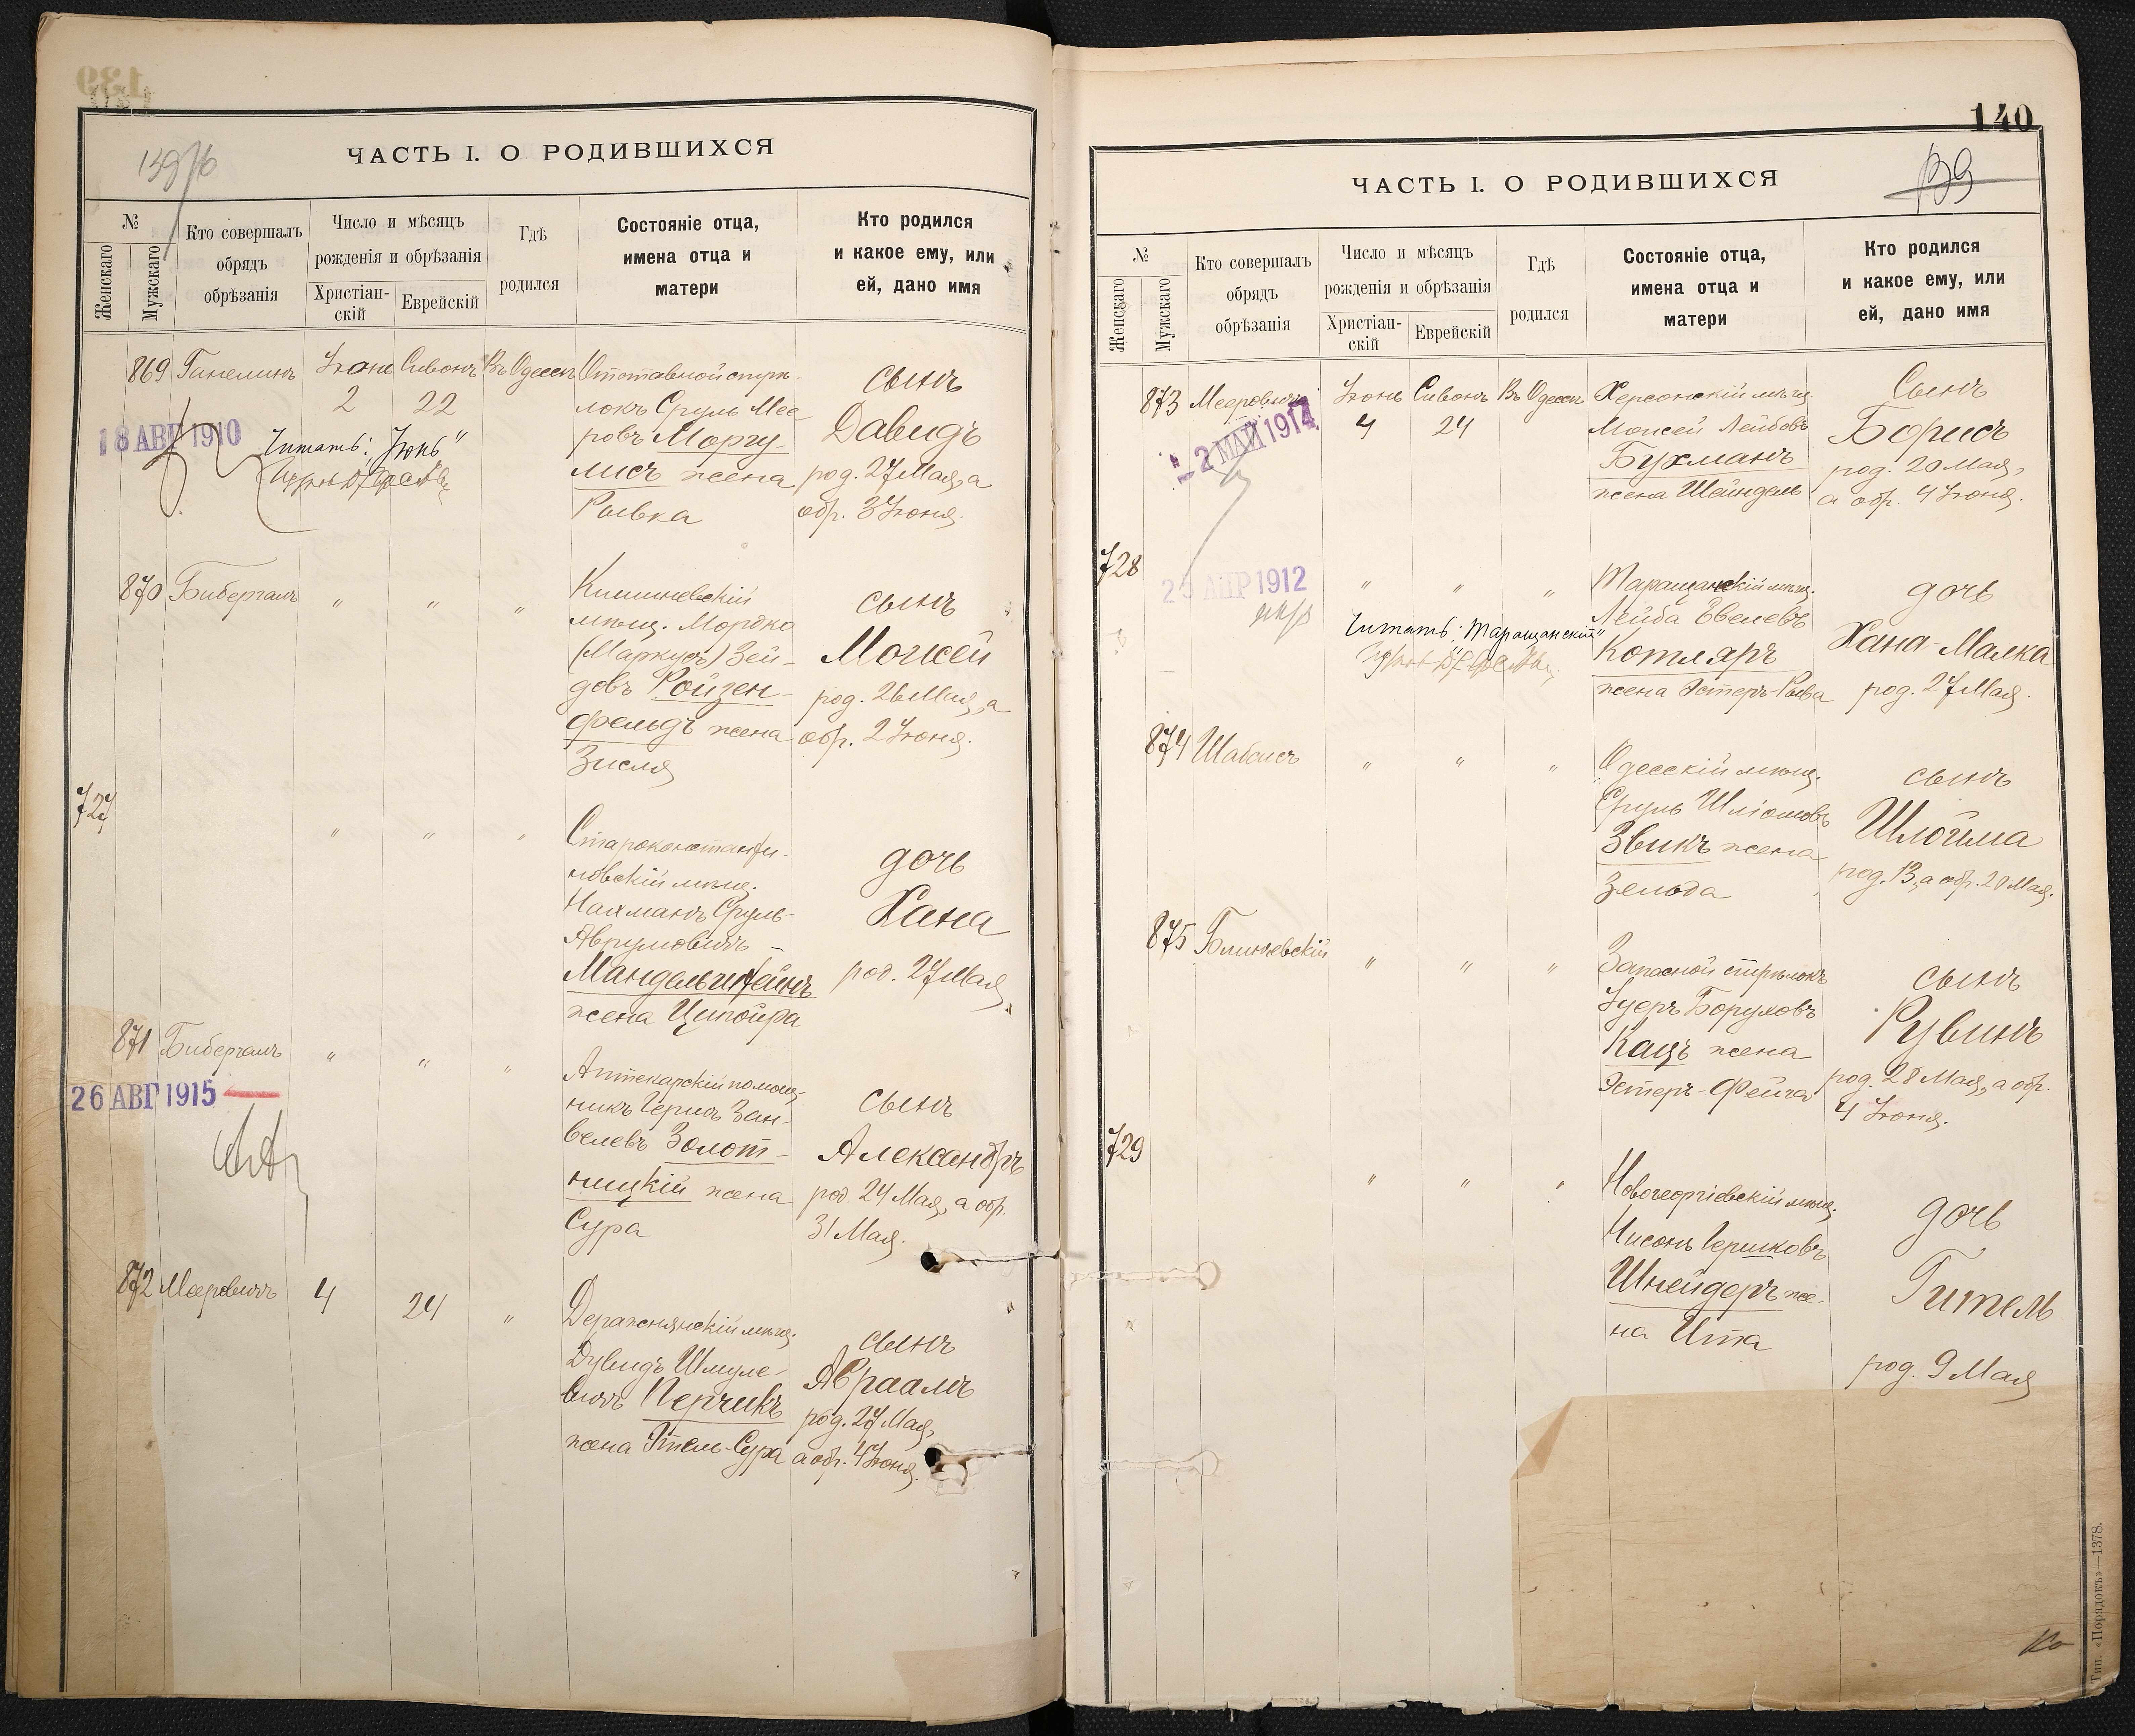 ЧАСТЬ I. О РОДИВШИХСЯ
№
Женскаго
Мужскаго
Кто совершалъ
обрядъ
обрѣзанія
Число и мѣсяцъ
рожденія и обрѣзанія
Христіан-
скій
Еврейскій
Гдѣ
родился
Состояніе отца,
имена отца и
матери
Кто родился
и какое ему, или
ей, дано имя
869
Іюнь
2
Сивонъ
22
Въ Одессѣ
Отставной стрѣ-
локъ Сруль Мее
ровъ Моргу-
лисъ жена
Рывка
сынъ
Давидъ
род. 27 Мая, а
обр. 3 Іюня.
18 АВГ 1910
Читать: „Іюнь"
870 Бибергалъ
"
"
"
Кишиневскій
мѣщ. Мордко
(Маркусъ) Зей-
довъ Ройзен-
фельдъ жена
Зисля
сынъ
Моисей
род. 26 Мая, а
обр. 2 Іюня.
727
"
"
"
Староконстанти-
новскій мѣщ.
Нахманъ Сруль-
Аврумовичъ
Мандельштейнъ
жена Ципойра
дочь
Хана
род. 27 Мая
871 Бибергалъ
"
"
"
Аптекарскій помощ-
никъ Гершъ Зан-
велевъ Золот-
ницкій жена
Сура
сынъ
Александръ
род. 24 Мая, а обр.
31 Мая.
26 АВГ 1915
872 Мееровичъ
4
24
"
Деражнянскій мѣщ.
Дувидъ Шмуле-
вичъ Перчикъ
жена Этель-Сура
сынъ
Авраамъ
род. 27 Мая,
а обр. 4 Іюня.
140
139
ЧАСТЬ I. О РОДИВШИХСЯ
№
Женскаго
Мужскаго
Кто совершалъ
обрядъ
обрѣзанія
Число и мѣсяцъ
рожденія и обрѣзанія
Христіан-
скій
Еврейскій
Гдѣ
родился
Состояніе отца,
имена отца и
матери
Кто родился
и какое ему, или
ей, дано имя
873 Мееровичъ
Іюнь
4
Сивонъ
24
Въ Одессѣ
Херсонскій мѣщ.
Моисей Лейбовъ
Бухманъ
жена Шейндель
Сынъ
Борисъ
род. 20 Мая,
а обр. 4 Іюня.
2 МАЙ 1914
728
"
"
"
Таращанскій мѣщ.
Лейба Эвелевъ
Котляръ
жена Эстеръ-Рыва
дочь
Хана-Малка
род. 27 Мая.
АПР 1912
Читать: „Таращанскій"
874 Шабсисъ
"
"
"
Одесскій мѣщ.
Сруль Шліомовъ
Звикъ жена
Зельда
сынъ
Шлойма
род. 13, а обр. 20 Мая.
875
"
"
"
Запасной стрѣлокъ
Іудеръ Боруховъ
Кацъ жена
Эстеръ-Фейга
сынъ
Рувинъ
род. 28 Мая, а обр.
4 Іюня.
729
"
"
"
Новогеоргіевскій мѣщ.
Нисонъ Гершковъ
Шнейдеръ же-
на Ита
дочь
Гитель
род. 9 Мая
Тип. «Порядокъ»—1378.